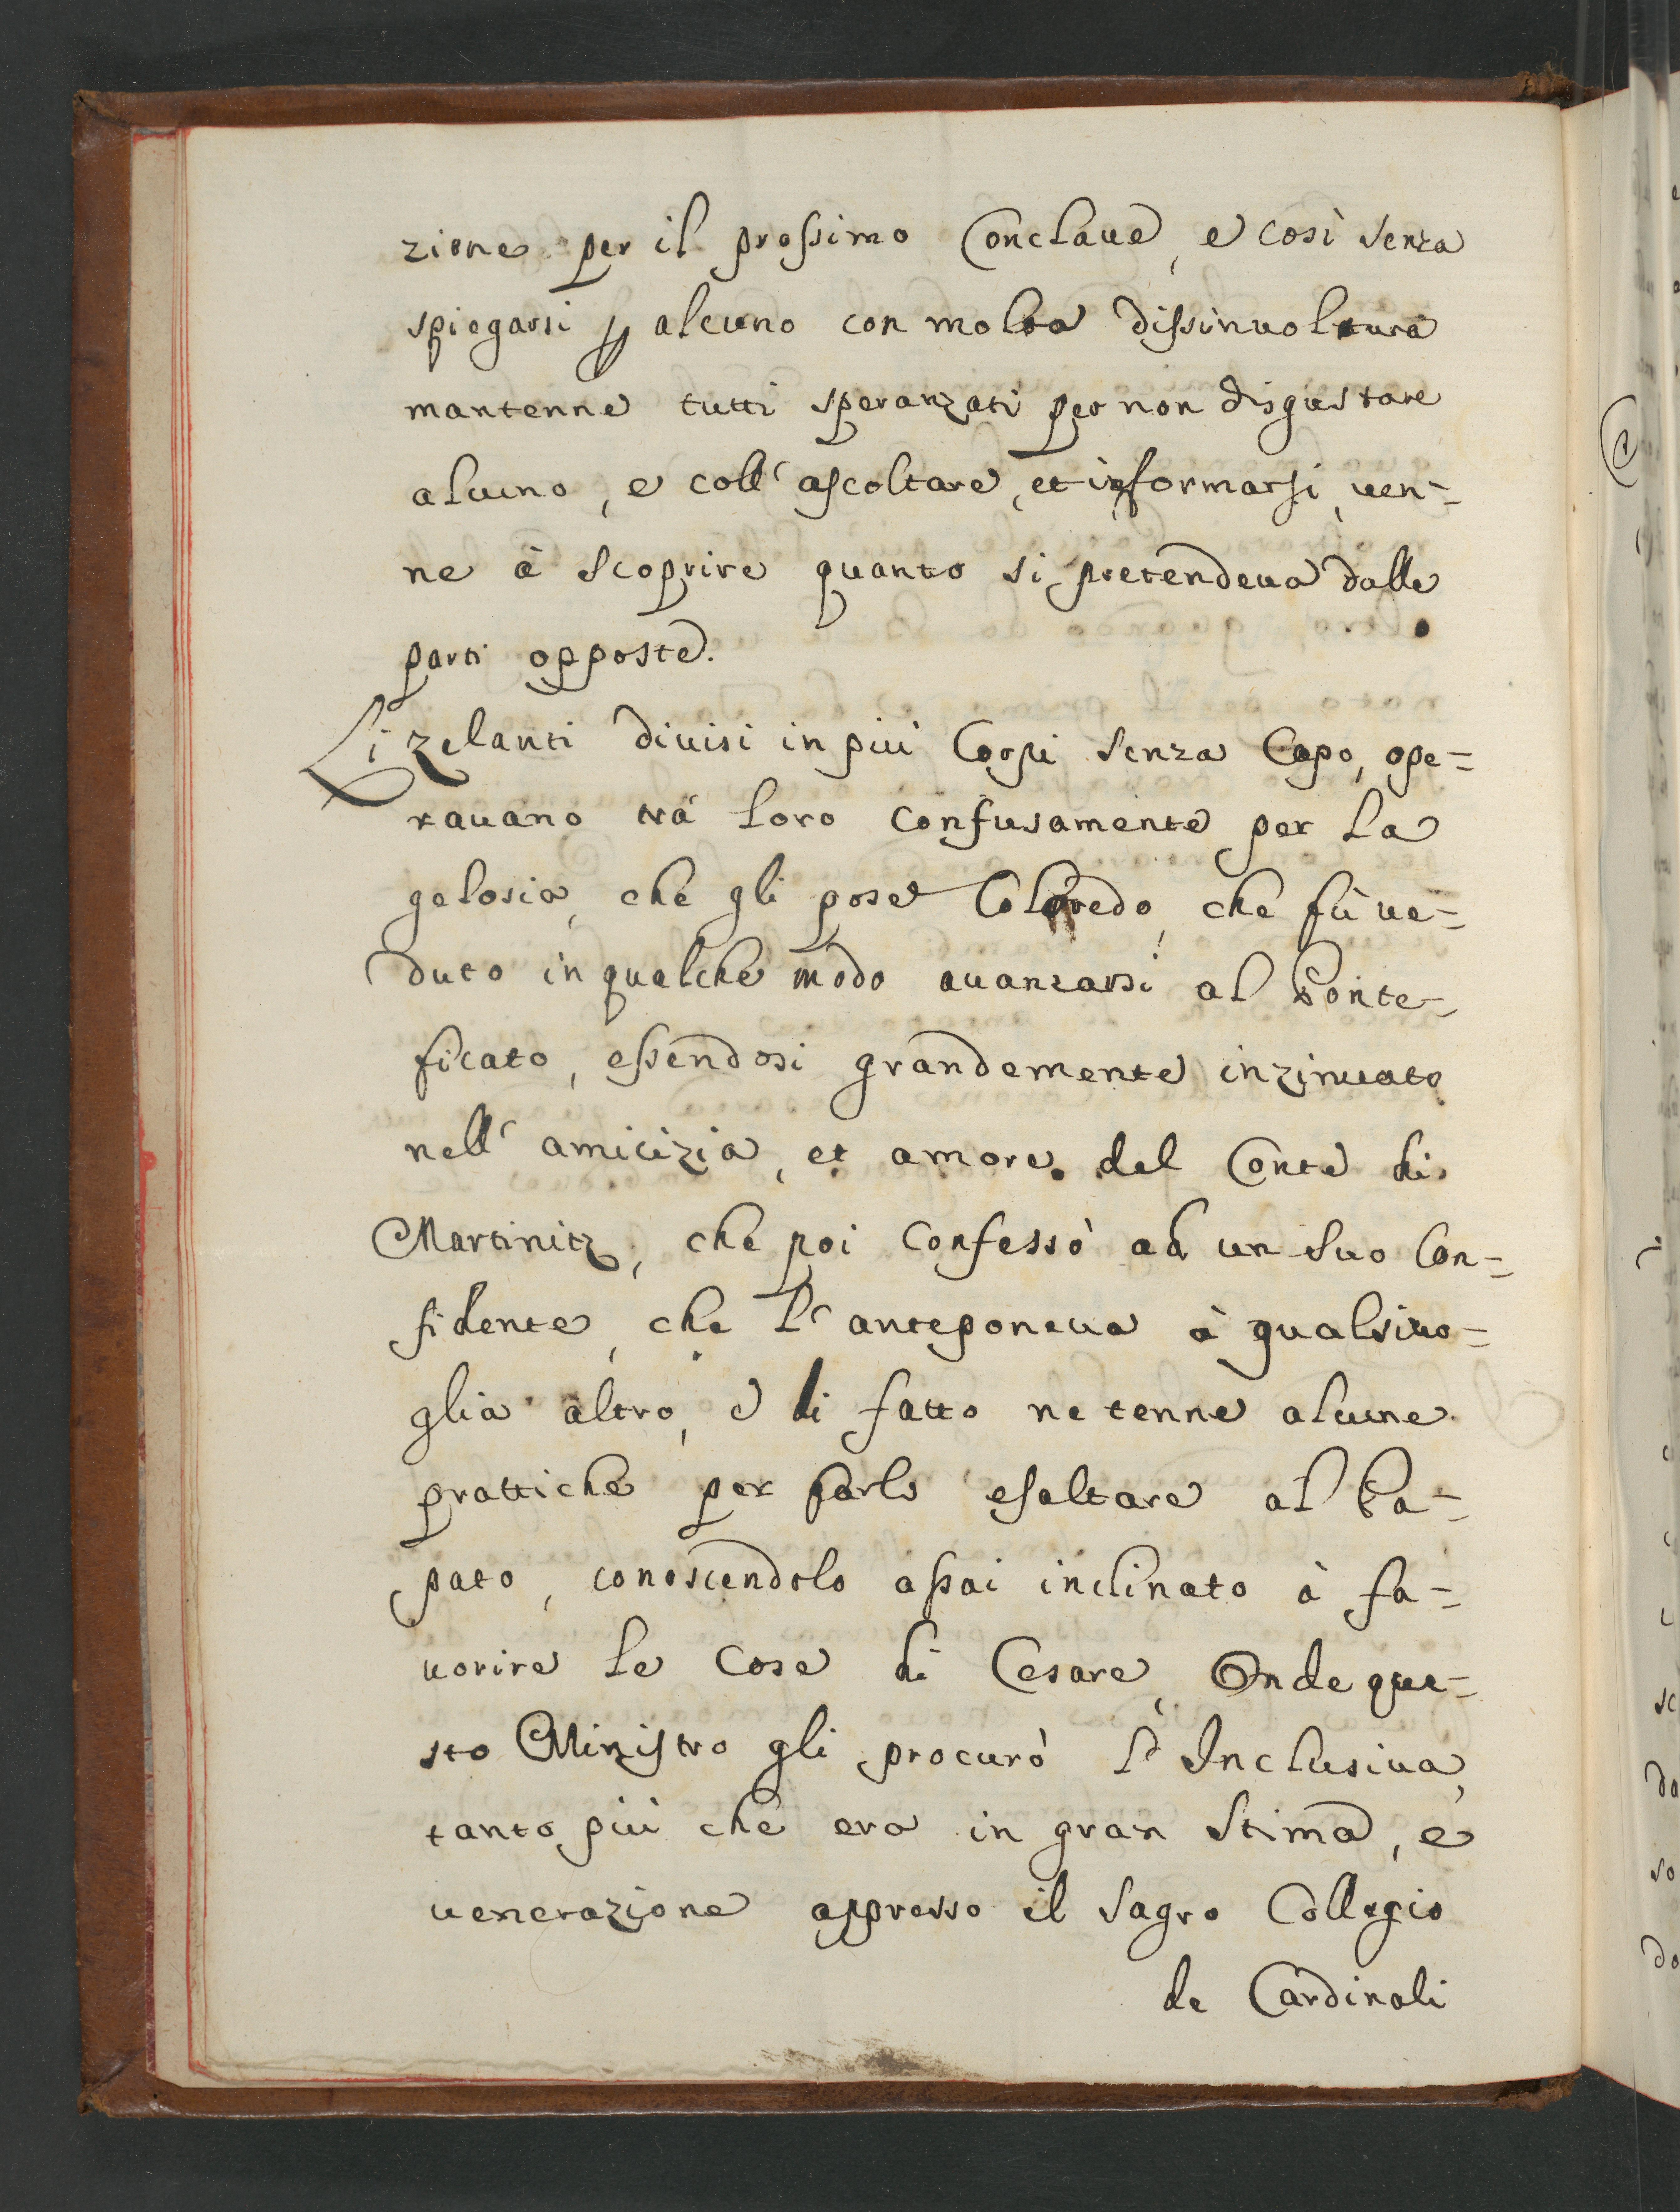 zione per il prossimo Conclaue, e così senza
spiegarsi ꝑ alcuno con molta dissinuoltura
mantenne tutti speranzati per non disgustare
alcuno, e coll' ascoltare, et informarsi, uen=
ne à scoprire quanto si pretendeua dalle
parti opposte.
Li zelanti diuisi in più Corpi senza Capo, ope=
rauano trà loro confusamente per la
gelosia, che gli pose Coloredo, che fù ue=
duto in qualche modo auanzarsi al Ponte=
ficato, essendosi grandemente inzinuato
nell' amicizia, et amore del Conte di
Martinitz, che poi confessò ad un suo Con=
fidente, che l' anteponeua à qualsiuo=
glia altro, e di fatto ne tenne alcune
prattiche per farlo esaltare al Pa=
pato, conoscendolo assai inclinato à fa=
uorire le cose di Cesare, Onde que=
sto Ministro gli procurò l' Inclusiua,
tanto più che era in gran stima, e
uenerazione appresso il Sagro Collegio
de Cardinali